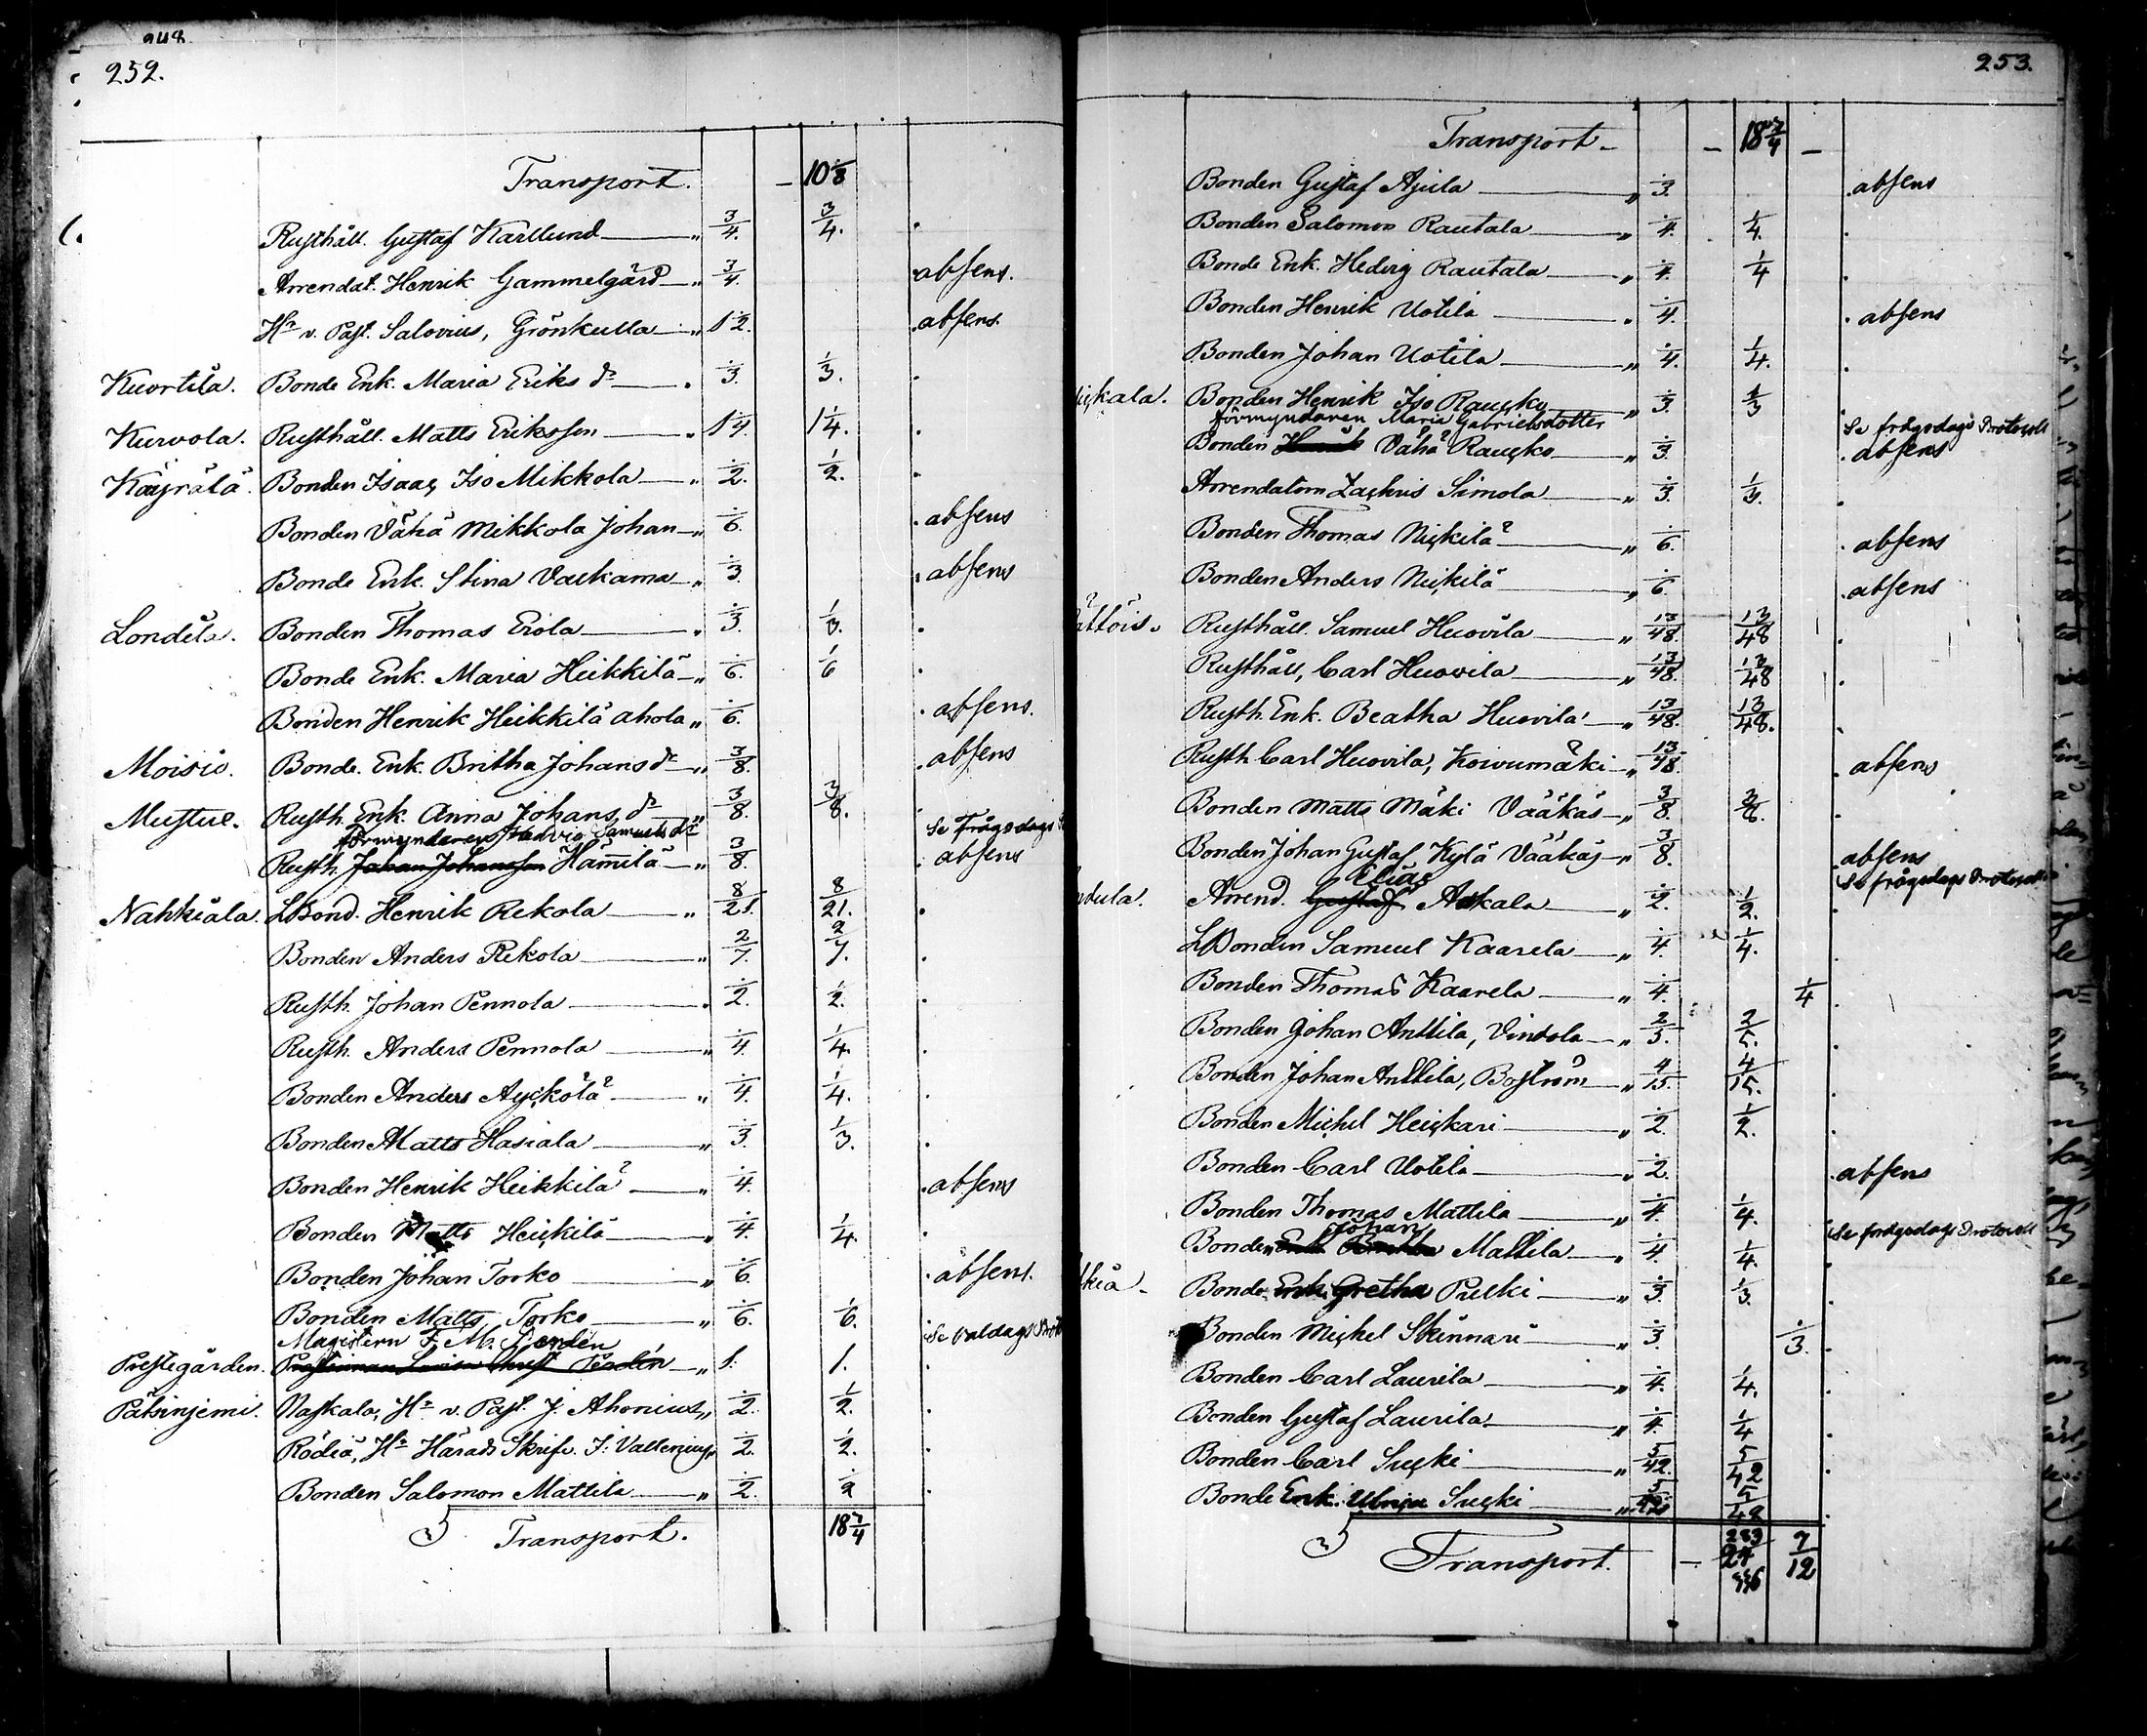 248.
252.
Transport. — 10 1/8
Rusthåll. Gustaf Karllund „ 3/4. 3/4.
Arrendat. Henrik Gammelgård „ 3/4. absens.
Hr v. Past. Salovius, Grönkulla „ 1 1/2. absens.
Kuortila. Bonde Enk. Maria Eriks dr „ 1/3. 1/3.
Kurvola. Rusthåll. Matts Eriksson „ 1 1/4. 1 1/4.
Käyrälä. Bonden Isaac Iso Mikkola „ 1/2. 1/2.
Bonden Vähä Mikkola Johan „ 1/6. absens
Bonde Enk. Stina Vaskama „ 1/3. absens
Londila. Bonden Thomas Erola „ 1/3. 1/3.
Bonde Enk. Maria Heikkilä „ 1/6. 1/6
Bonden Henrik Heikkilä ahola „ 1/6. absens.
Moisio. Bonde. Enk. Britha Johans dr „ 3/8. absens
Mustue. Rusth. Enk. Anna Johans dr „ 3/8. 3/8.
förmyndaren Hedvig Samuels dr Se frågodags
Rusth. Johan Johansson Hämilä „ 3/8. absens
Nahkiala. LBond. Henrik Rekola „ 8/21. 8/21.
Bonden Anders Rekola „ 2/7. 2/7.
Rusth. Johan Pennola „ 1/2. 1/2.
Rusth. Anders Pennola „ 1/4. 1/4.
Bonden Anders Äyckölä „ 1/4. 1/4.
Bonden Matts Hasiala „ 1/3. 1/3.
Bonden Henrik Heikkilä „ 1/4. absens
Bonden Matts Heickilä „ 1/4. 1/4.
Bonden Johan Torko „ 1/6. absens.
Bonden Matts Torko „ 1/6. 1/6.
Magistern F. M. Perdén Se valdags Prot
Prestegården. „ 1. 1.
Pätsinjemi. Naskala, Hr v. Past. J. Ahonius „ 1/2. 1/2.
Rödiä, Hr Härads Skrifv. J: Vallenius „ 1/2. 1/2.
Bonden Salomon Mattila „ 1/2. 1/2
Transport. 18 3/4
253.
Transport — — 18 3/4 —
Bonden Gustaf Ajula „ 1/3. absens
Bonden Salomon Rautala „ 1/4. 1/4.
Bonde Enk. Hedvig Rautala „ 1/4. 1/4
Bonden Henrik Uotila „ 1/4. absens
Bonden Johan Uotila „ 1/4. 1/4.
ickala. Bonden Henrik Iso Raucko „ 1/3. 1/3
förmyndaren Maria Gabrielsdotter Se frågodags Protocoll
Bonden Henrik Vähä Raucko „ 1/3. absens
Arrendatorn Zachris Simola „ 1/3. 1/3.
Bonden Thomas Nickilä „ 1/6. absens
Bonden Anders Nickilä „ 1/6. absens
ättöis. Rusthåll. Samuel Huovila „ 13/48. 13/48
Rusthåll, Carl Huovila „ 13/48. 13/48
Rusth. Enk. Beatha Huovila „ 13/48. 13/48.
Rusth. Carl Huovila, Koivumäki „ 13/48. absens
Bonden Matts Mäki Vääkäs „ 3/8. 3/8.
Bonden Johan Gustaf Kylä Vääkäs „ 3/8. absens
Elias Se frågodags Protocoll
ndula. Arrend. Gustaf Askala „ 1/2. 1/2.
LBonden Samuel Kaarela „ 1/4. 1/4.
Bonden Thomas Kaarela „ 1/4. 1/4
Bonden Johan Anttila, Vintola „ 2/5. 2/5.
Bonden Johan Anttila, Boström „ 4/15. 4/15.
Bonden Michel Heickari „ 1/2. 1/2.
Bonden Carl Uotila „ 1/2. absens
Bonden Thomas Mattila „ 1/4. 1/4.
Johan Se frågodags Protocoll
Bonden Enk. Britha Mattila „ 1/4. 1/4.
kiä. Bonde Enk. Gretha Puski „ 1/3. 1/3.
Bonden Mickel Skinnari „ 1/3. 1/3.
Bonden Carl Laurila „ 1/4. 1/4.
Bonden Gustaf Laurila „ 1/4. 1/4
Bonden Carl Sucki „ 5/42. 5/42
Bonde Enk. Ulrica Sucki „ 5/42. 5/42
Transport. — 24 7/12